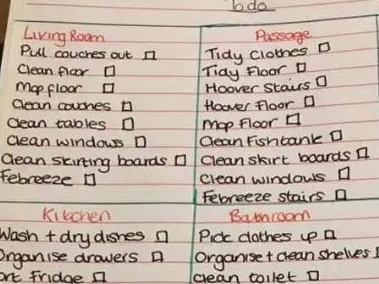 to do
Living Room
Pull couches out
Clean floor
Mop floor
Clean couches
Clean tables
Clean windows
Clean skirting boards
Febreeze
Passage
Tidy Clothes
Tidy Floor
Hoover Stairs
Hoover Floor
Mop Floor
Clean Fishtank
Clean skirt boards
Clean windows
Febreeze stairs
Kitchen
Wash + dry dishes
Organise drawers
Sort Fridge
Bathroom
Pick clothes up
Organise + clean shelves
Clean toilet